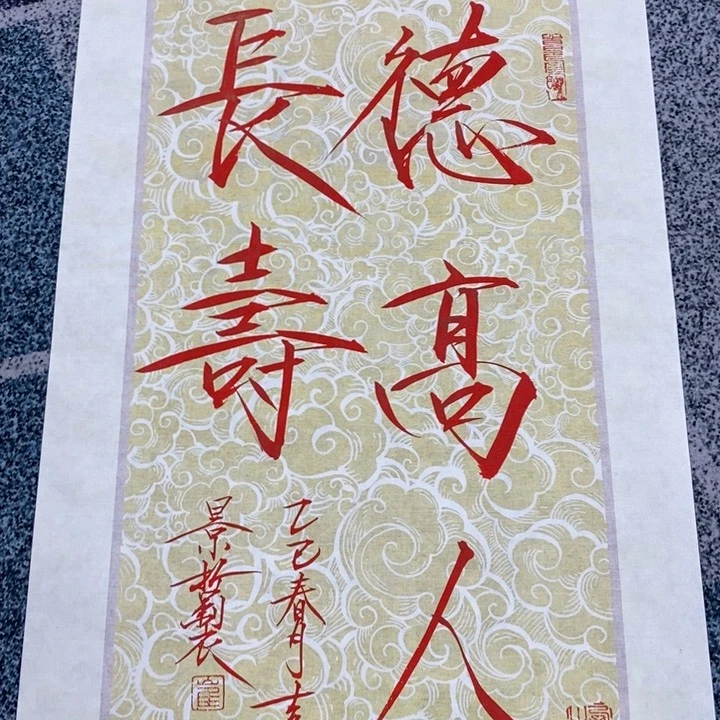 德高人
長壽
乙巳春月吉
景